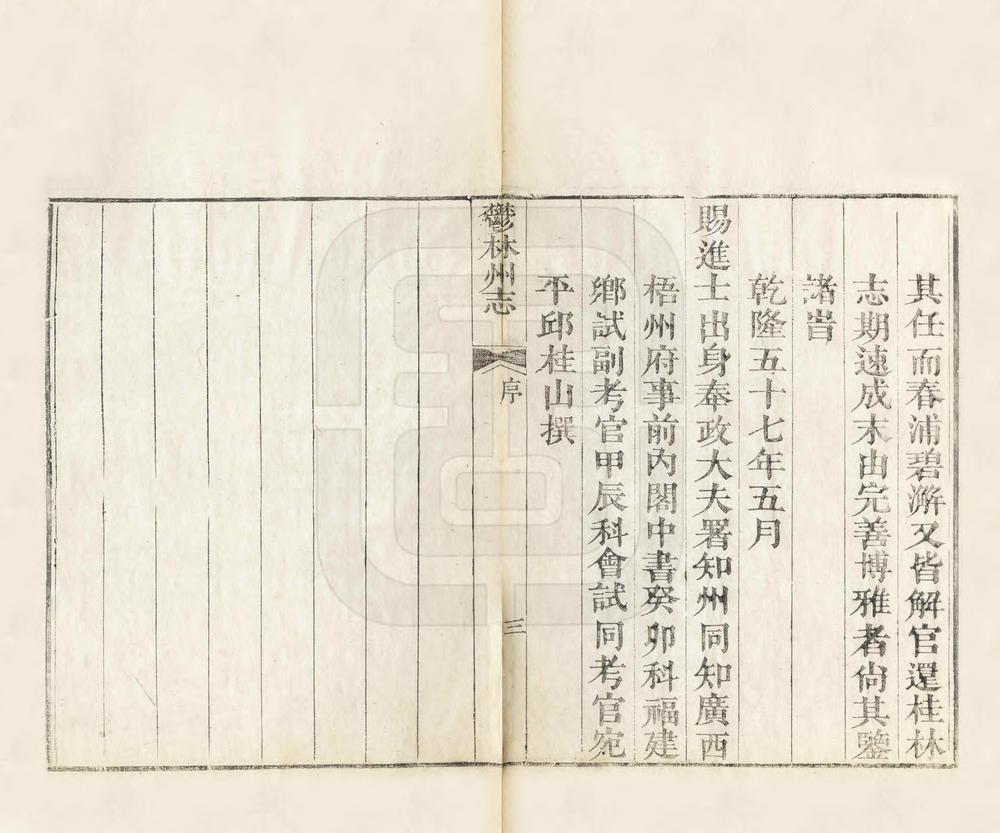 其任而春浦碧澥又皆解官還桂林
志期速成末由完善博雅者尙其鑒
諸旹
乾隆五十七年五月
賜進士出身奉政大夫署知州同知廣西
梧州府事前內閣中書癸卯科福建
鄉試副考官甲辰科會試同考官宛
平邱桂山撰
鬱林州志
序
三